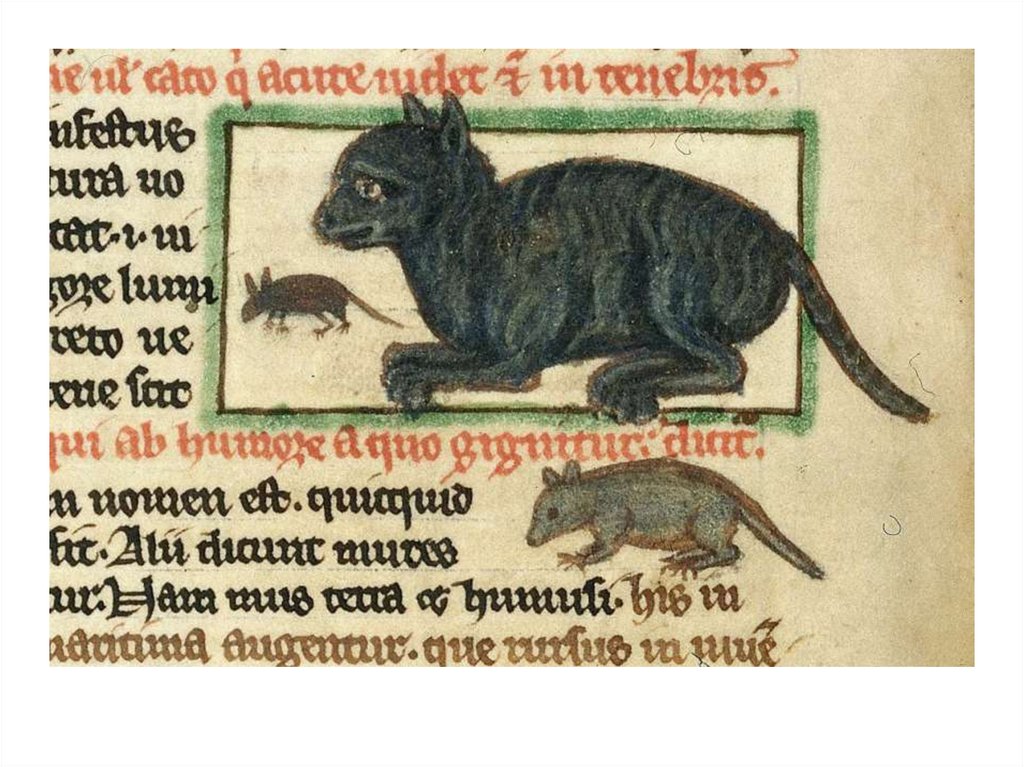 ul' cato q̇ acute uidet ⁊̄ in tenebris.
infestus
tura uo
tat·i·ui
gore lumi
creto ue
rene scit
qui ab humore a quo gignitur. dicit.
nomen est. quicquid
fit. Alii dicunt mures
tur. Nam mus terra & humus i. his in
maritima augentur. que rursus in